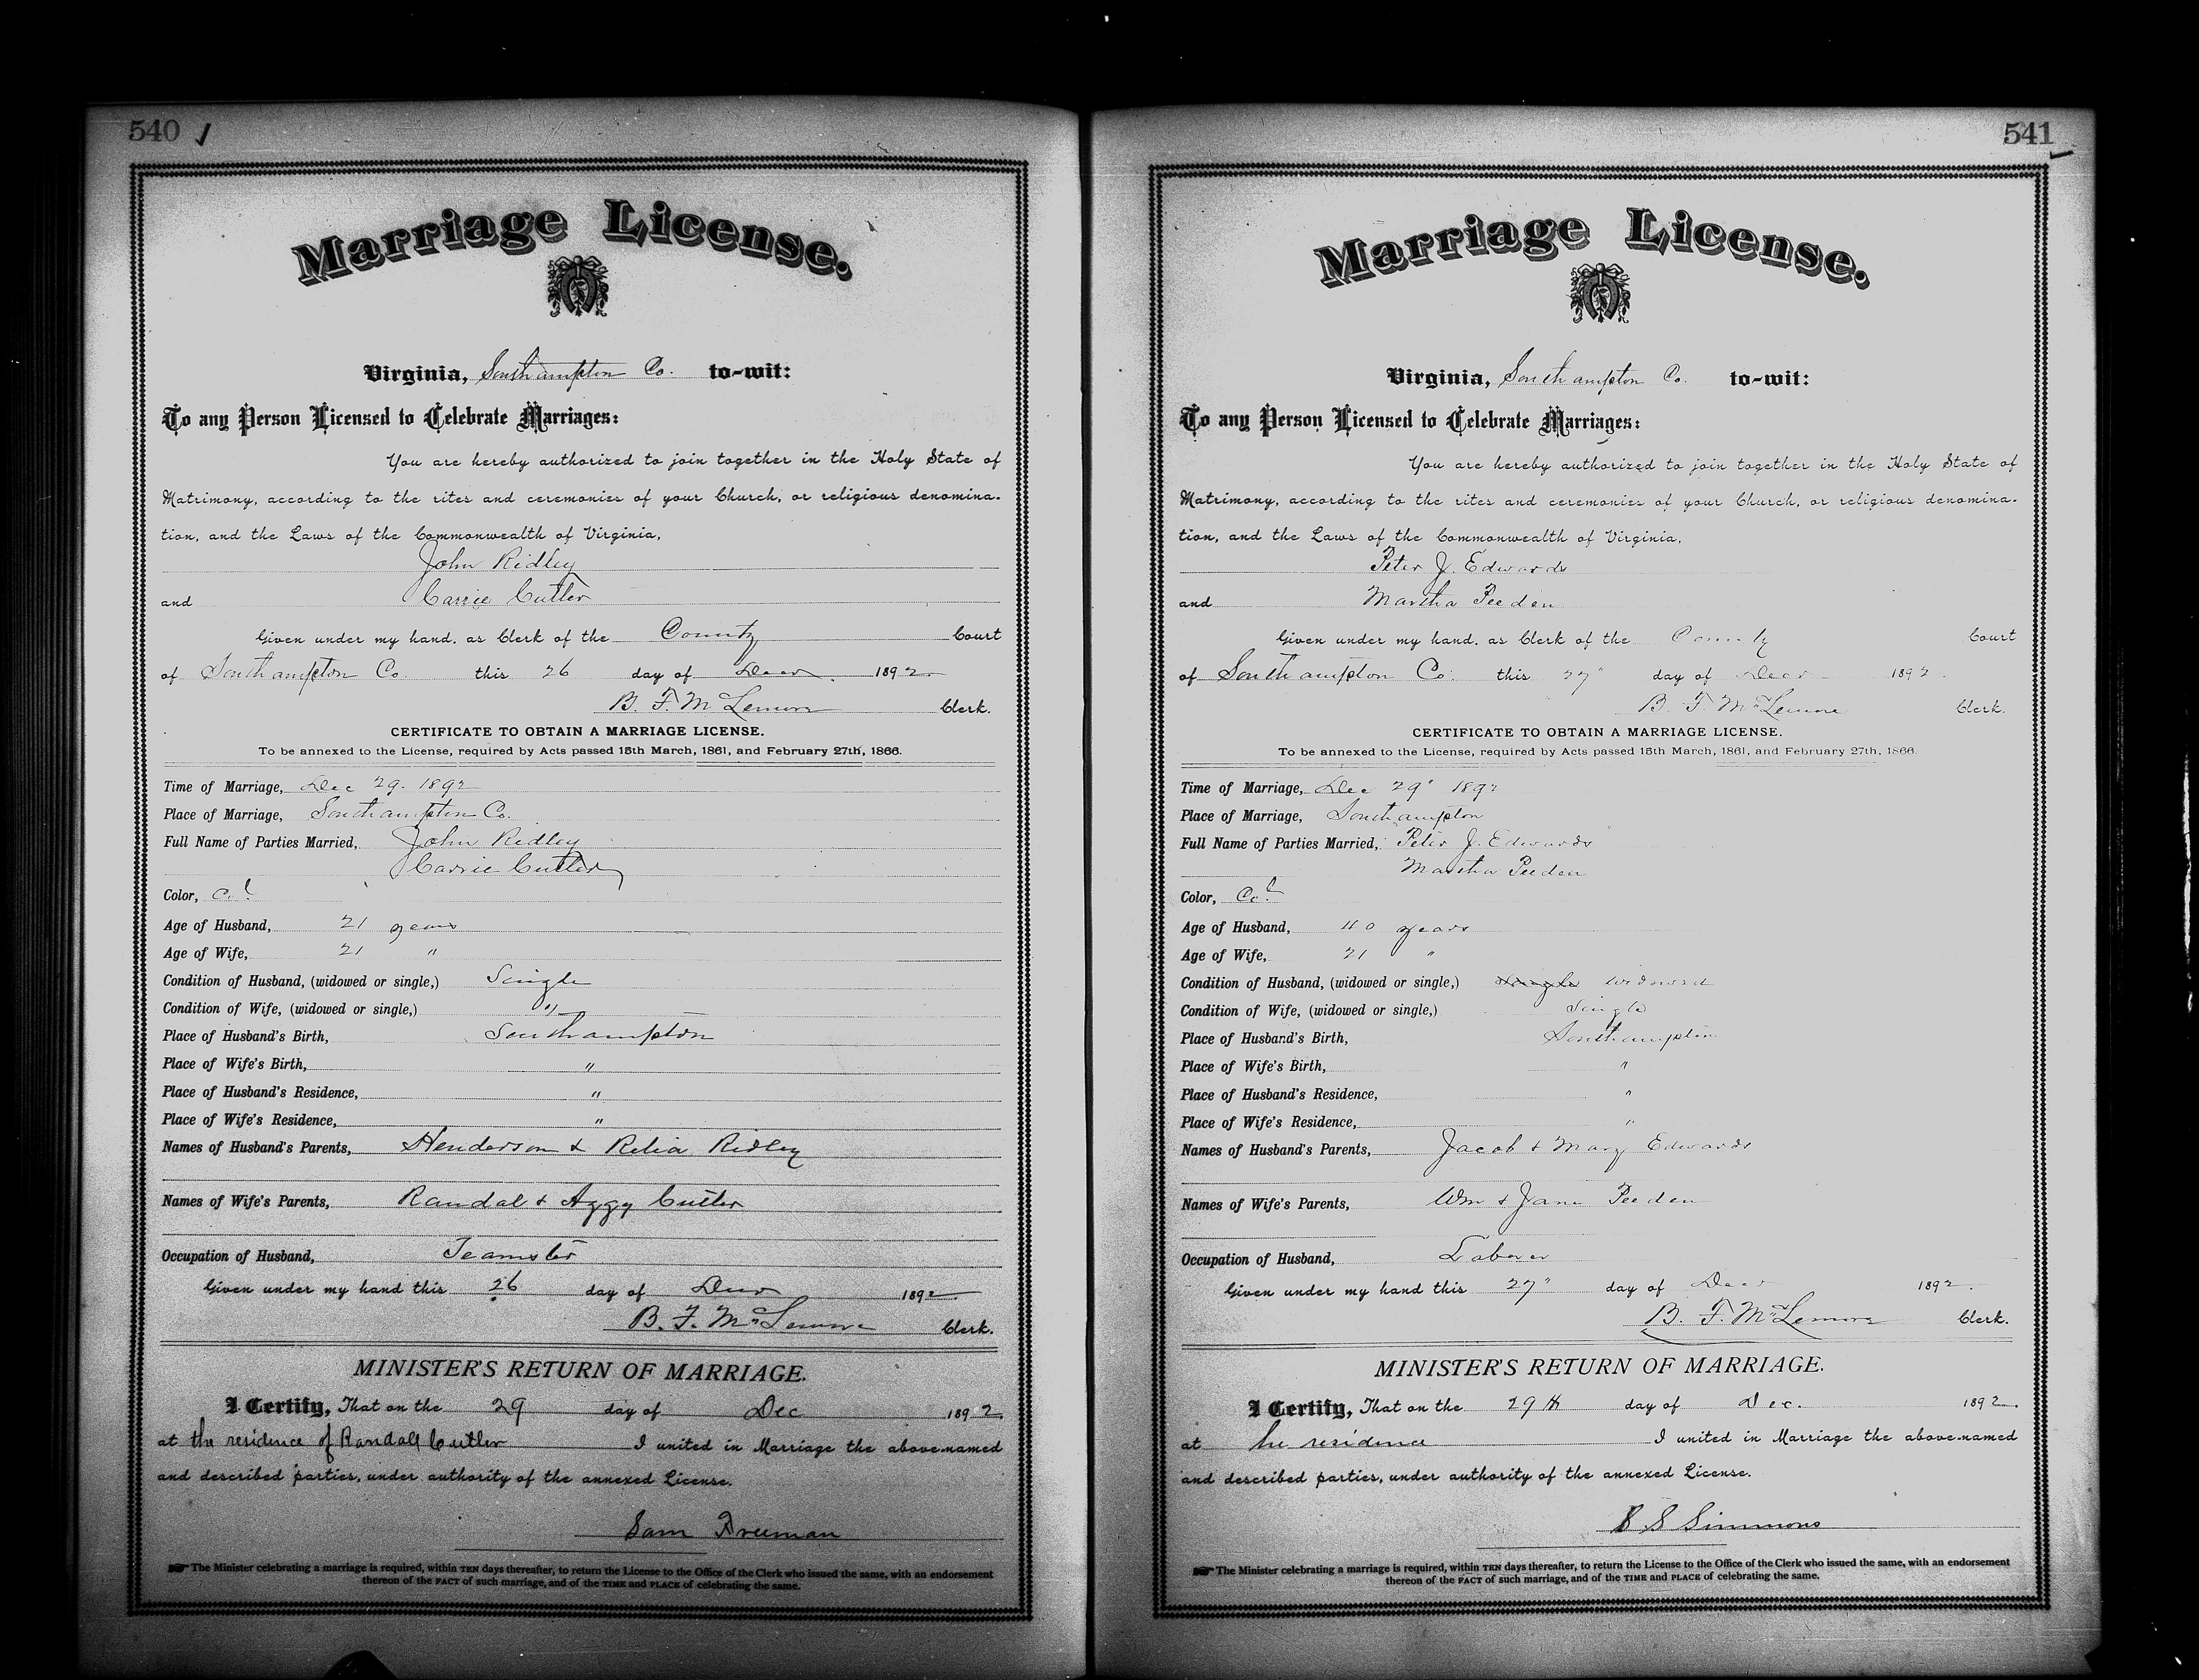 540
Marriage License.
Virginia, Southampton Co. to-wit:
To any Person Licensed to Celebrate Marriages:
You are hereby authorized to join together in the Holy State of
Matrimony, according to the rites and ceremonies of your Church, or religious denomina-
tion, and the Laws of the Commonwealth of Virginia,
John Ridley
and Carrie Cutler
Given under my hand, as Clerk of the County Court
of Southampton Co. this 26 day of Decr. 1892
B. F. McLemore Clerk.
CERTIFICATE TO OBTAIN A MARRIAGE LICENSE.
To be annexed to the License, required by Acts passed 15th March, 1861, and February 27th, 1866.
Time of Marriage, Dec 29. 1892
Place of Marriage, Southampton Co.
Full Name of Parties Married, John Ridley
Carrie Cutler
Color, Col
Age of Husband, 21 years
Age of Wife, 21 "
Condition of Husband, (widowed or single,) Single
Condition of Wife, (widowed or single,) "
Place of Husband's Birth, Southampton
Place of Wife's Birth, "
Place of Husband's Residence, "
Place of Wife's Residence, "
Names of Husband's Parents, Henderson & Relia Ridley
Names of Wife's Parents, Randal & Aggy Cutler
Occupation of Husband, Teamster
Given under my hand this 26 day of Decr 1892
B. F. McLemore Clerk.
MINISTER'S RETURN OF MARRIAGE.
I Certify, That on the 29 day of Dec 1892.
at the residence of Randall Cutler I united in Marriage the above-named
and described parties, under authority of the annexed License.
Sam Freeman
The Minister celebrating a marriage is required, within TEN days thereafter, to return the License to the Office of the Clerk who issued the same, with an endorsement
thereon of the FACT of such marriage, and of the TIME and PLACE of celebrating the same.
541
Marriage License.
Virginia, Southampton Co. to-wit:
To any Person Licensed to Celebrate Marriages:
You are hereby authorized to join together in the Holy State of
Matrimony, according to the rites and ceremonies of your Church, or religious denomina-
tion, and the Laws of the Commonwealth of Virginia,
Peter J. Edwards
and Martha Peeden
Given under my hand, as Clerk of the County Court
of Southampton Co. this 27" day of Decr 1892.
B. F. McLemore Clerk.
CERTIFICATE TO OBTAIN A MARRIAGE LICENSE.
To be annexed to the License, required by Acts passed 15th March, 1861, and February 27th, 1866.
Time of Marriage, Dec 29" 1892
Place of Marriage, Southampton
Full Name of Parties Married, Peter J. Edwards
Martha Peeden
Color, Col
Age of Husband, 40 years
Age of Wife, 21 "
Condition of Husband, (widowed or single,) Single widowed
Condition of Wife, (widowed or single,) Single
Place of Husband's Birth, Southampton
Place of Wife's Birth, "
Place of Husband's Residence, "
Place of Wife's Residence, "
Names of Husband's Parents, Jacob & Mary Edwards
Names of Wife's Parents, Wm & Jane Peeden
Occupation of Husband, Laborer
Given under my hand this 27" day of Decr 1892.
B. F. McLemore Clerk.
MINISTER'S RETURN OF MARRIAGE.
I Certify, That on the 29th day of Dec. 1892.
at his residence I united in Marriage the above-named
and described parties, under authority of the annexed License.
S S Simmons
The Minister celebrating a marriage is required, within TEN days thereafter, to return the License to the Office of the Clerk who issued the same, with an endorsement
thereon of the FACT of such marriage, and of the TIME and PLACE of celebrating the same.